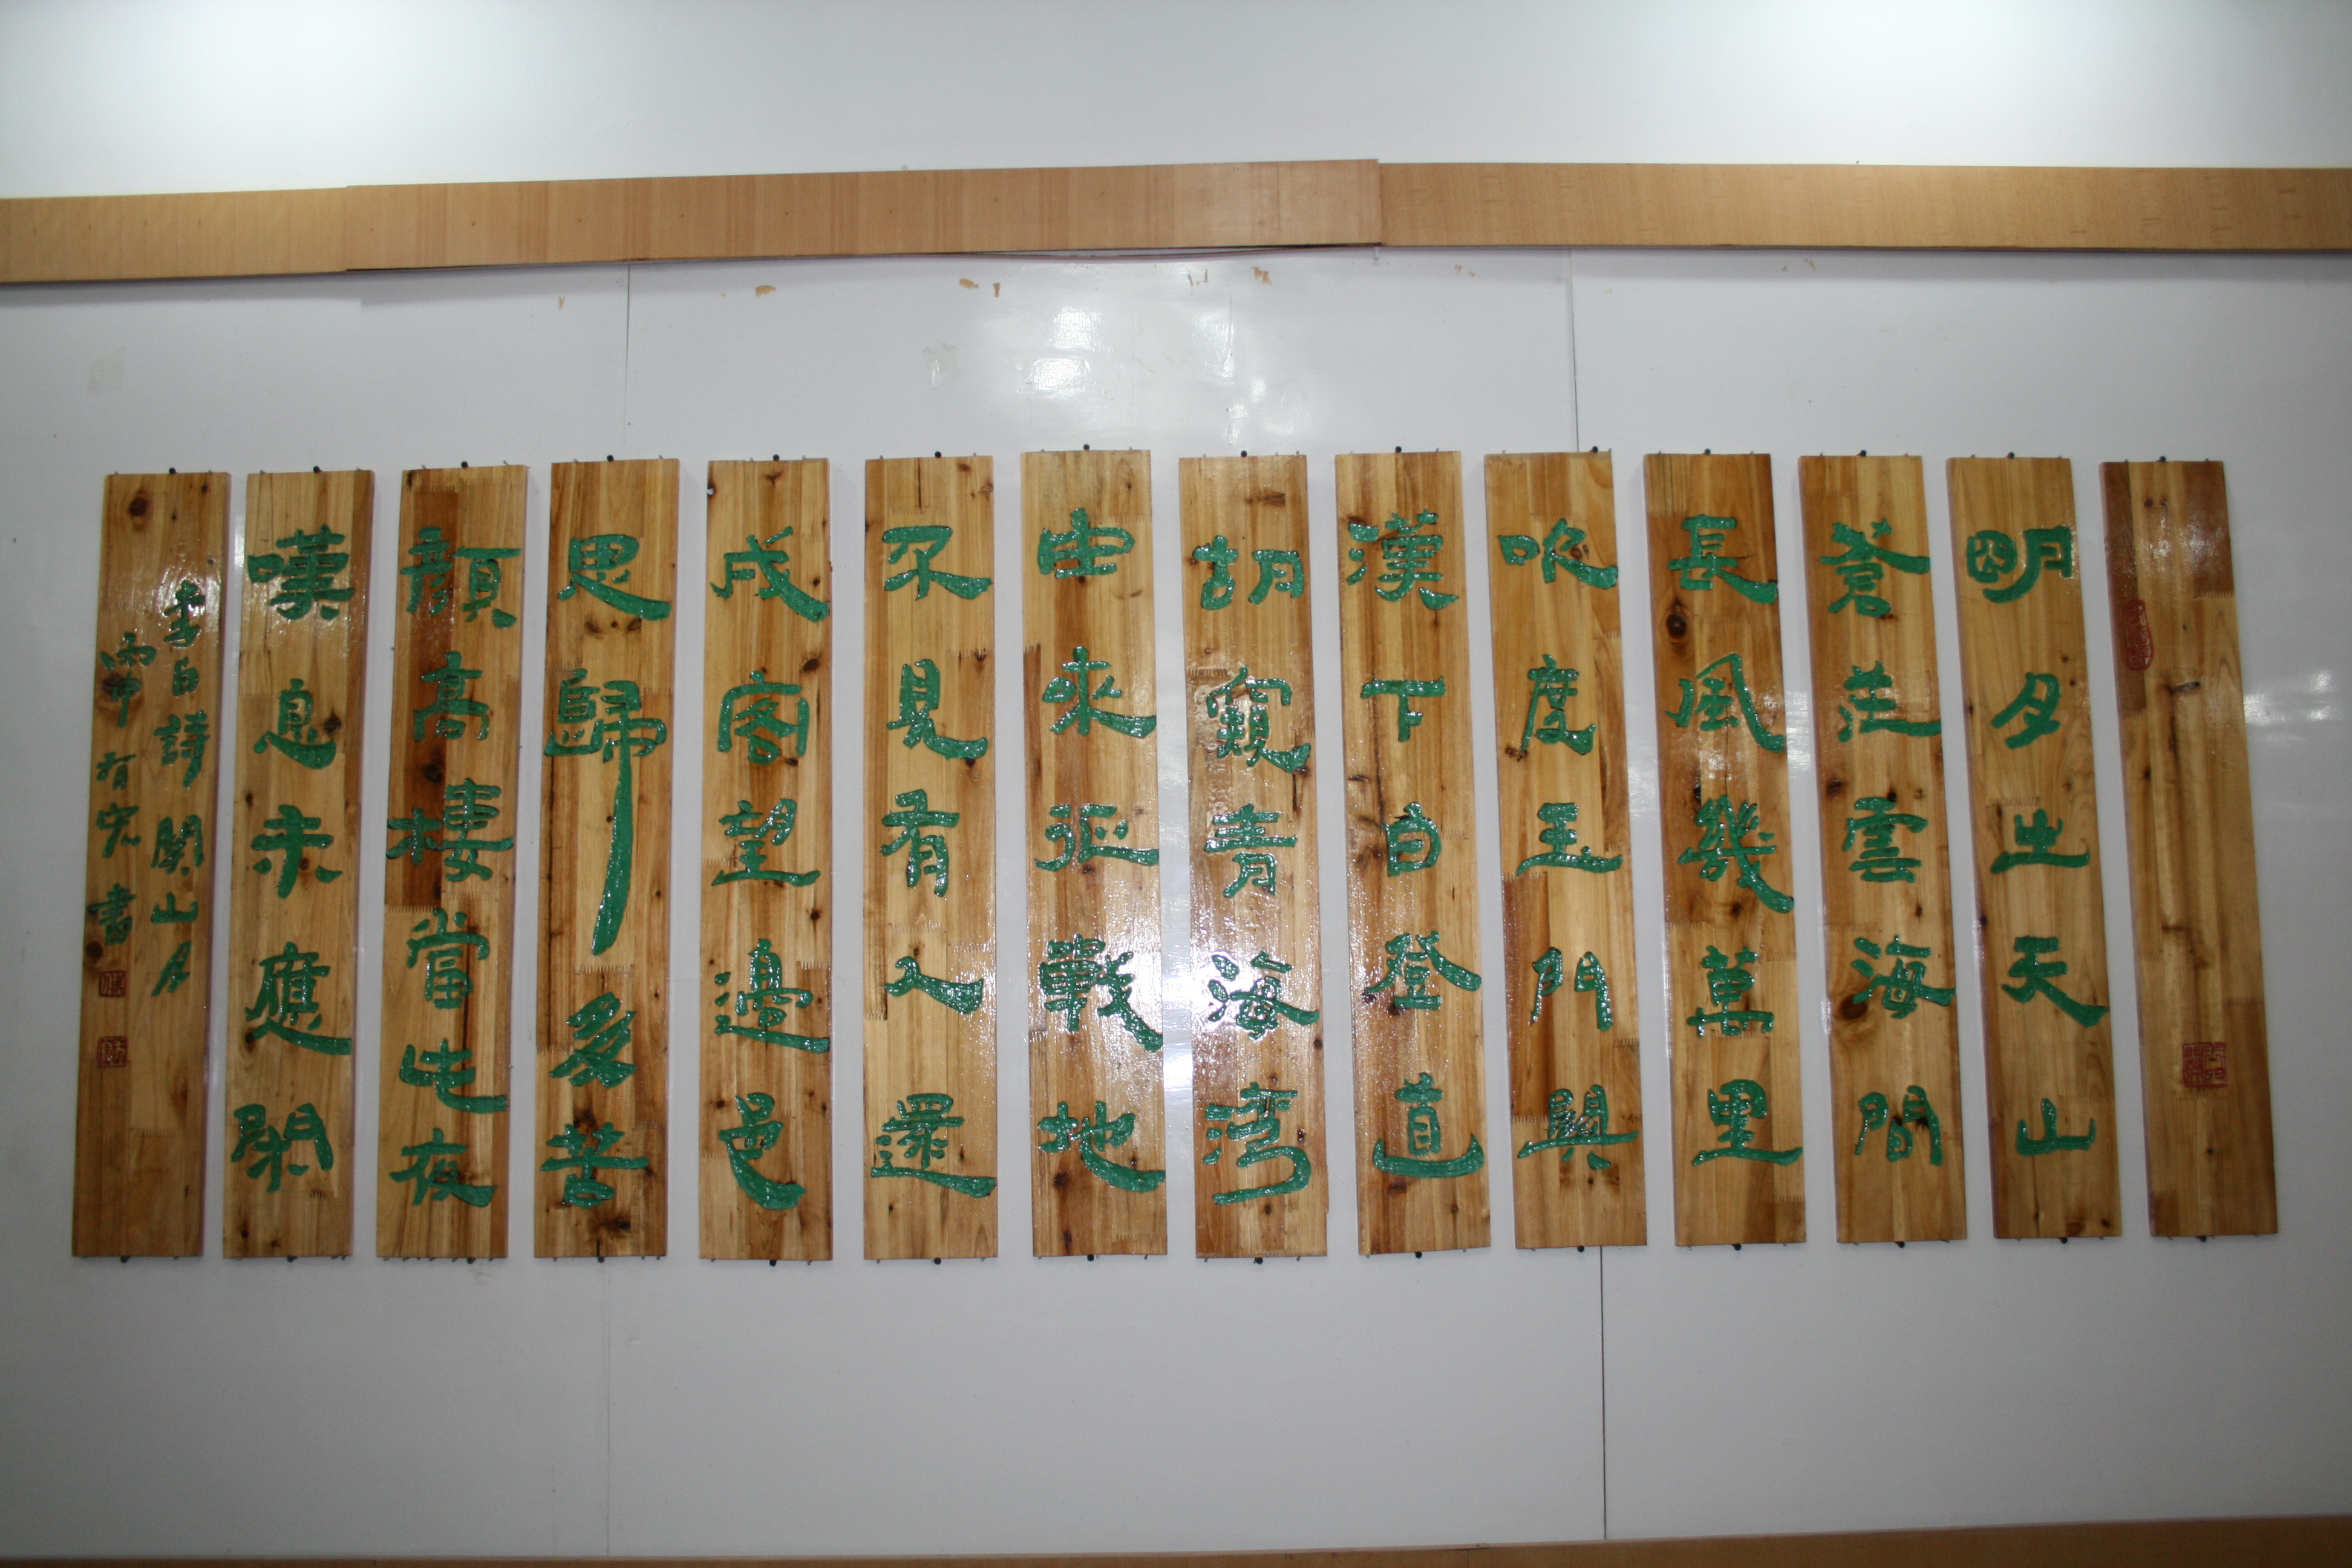 明月出天山
蒼茫雲海間
長風幾萬里
吹度玉門關
漢下白登道
胡窺青海湾
由來征戰地
不見有人還
戍客望邊邑
思歸多苦
顏高樓當此夜
嘆息未應閑
李白詩関山月
丙申有宏書